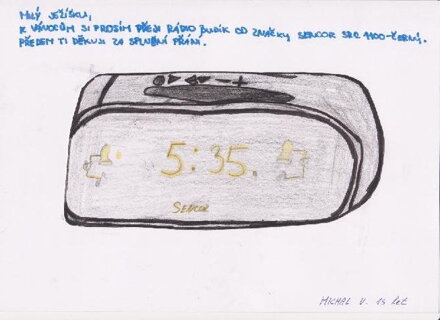 MILÝ JEŽÍŠKU,
K VÁNOCŮM SI PROSÍM PŘEJI RÁDIO BUDÍK OD ZNAČKY SENCOR SRC 1100-ČERNÝ.
PŘEDEM TI DĚKUJI ZA SPLNĚNÍ PŘÁNÍ.
5:35.
SENCOR
MICHAL V. 13 let